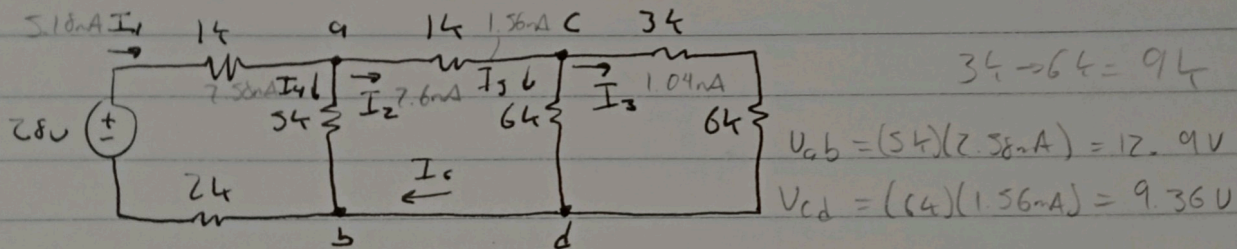 5.18mA I₁ 1k a 1k 1.56mA c 3k
2.58mA I₄↓ I₂ 2.6mA I₅↓ I₃ 1.04mA
28V + - 5k 6k 6k
2k I₆
b d
3k → 6k = 9k
Vab = (5k)(2.58mA) = 12.9V
Vcd = (6k)(1.56mA) = 9.36V